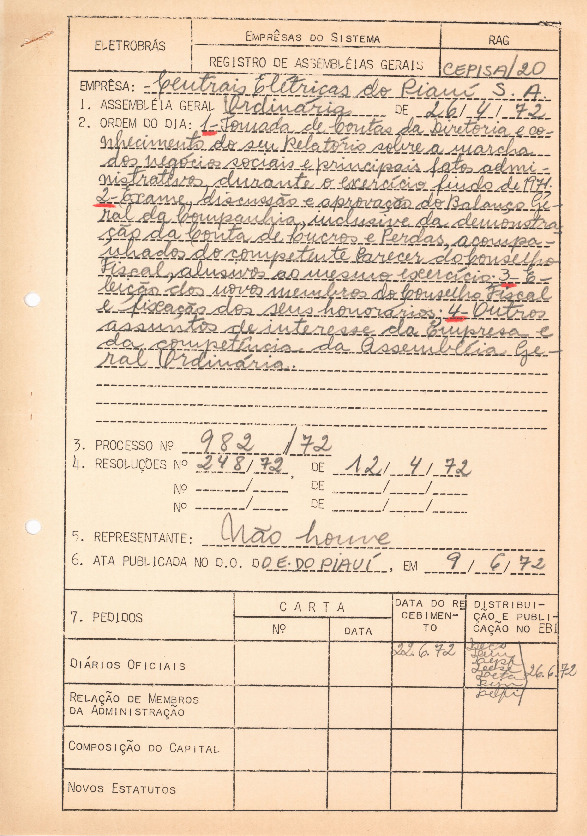 ELETROBRÁS
EMPRÊSAS DO SISTEMA
RAG
REGISTRO DE ASSEMBLÉIAS GERAIS
CEPISA/20
EMPRÊSA: Centrais Elétricas do Piauí S. A.
1. ASSEMBLÉIA GERAL Ordinária DE 26/4/72
2. ORDEM DO DIA: 1- Tomada de Contas da Diretoria e co-
nhecimento do seu Relatório sobre a marcha
dos negócios sociais e principais fatos admi-
nistrativos, durante o exercício findo de 1971.
2- Exame, discussão e aprovação do Balanço Ge-
ral da Companhia, inclusive da demonstra-
ção da Conta de Lucros e Perdas, acompa-
nhados do competente Parecer do Conselho
Fiscal, alusivos ao mesmo exercício. 3- E-
leição dos novos membros do Conselho Fiscal
e fixação dos seus honorários; 4- Outros
assuntos de interesse da Empresa e
da competência da Assembléia Ge-
ral Ordinária.
3. PROCESSO Nº 982/72
4. RESOLUÇÕES Nº 248/72, DE 12/4/72
Nº / DE / /
Nº / DE / /
5. REPRESENTANTE: Não houve
6. ATA PUBLICADA NO D.O. DO E. DO PIAUÍ, EM 9/6/72
7. PEDIDOS
CARTA
Nº
DATA
DATA DO RE
CEBIMEN-
TO
DISTRIBUI-
ÇÃO E PUBLI-
CAÇÃO NO EBI
DIÁRIOS OFICIAIS
22.6.72
26.6.72
RELAÇÃO DE MEMBROS
DA ADMINISTRAÇÃO
COMPOSIÇÃO DO CAPITAL
NOVOS ESTATUTOS